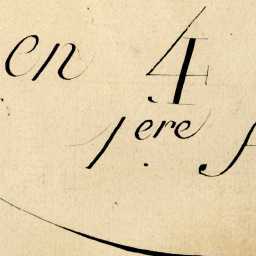 en 4
1ere